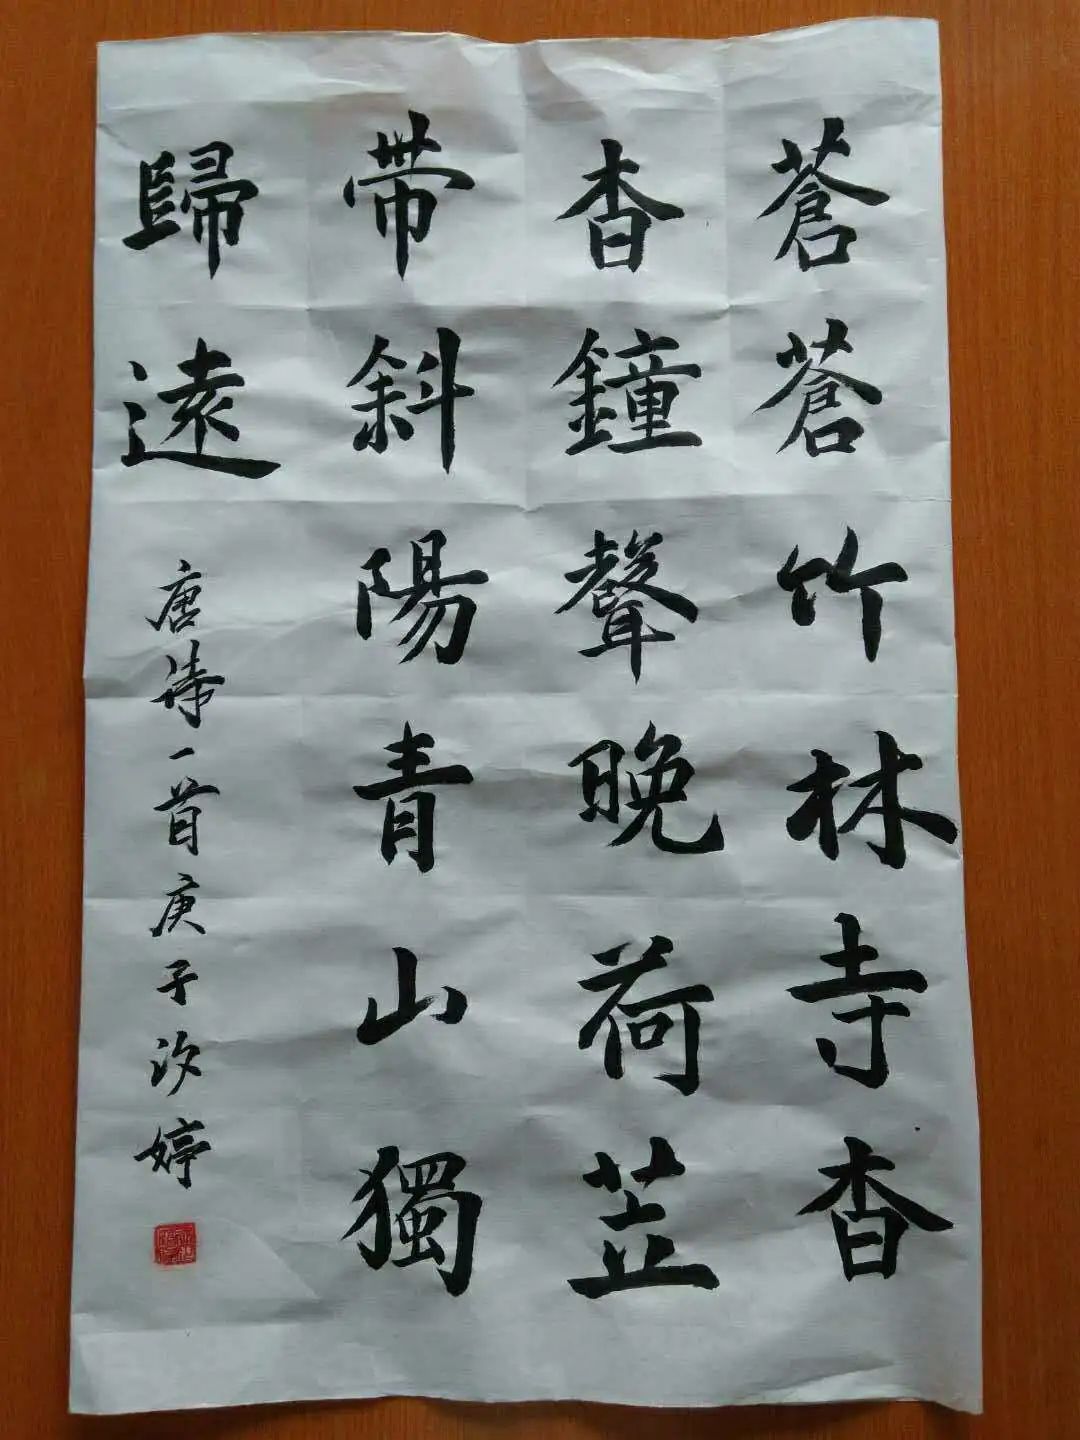 蒼蒼竹林寺杳
杳鐘聲晚荷苙
帶斜陽青山獨
歸遠
唐詩一首庚子汐婷